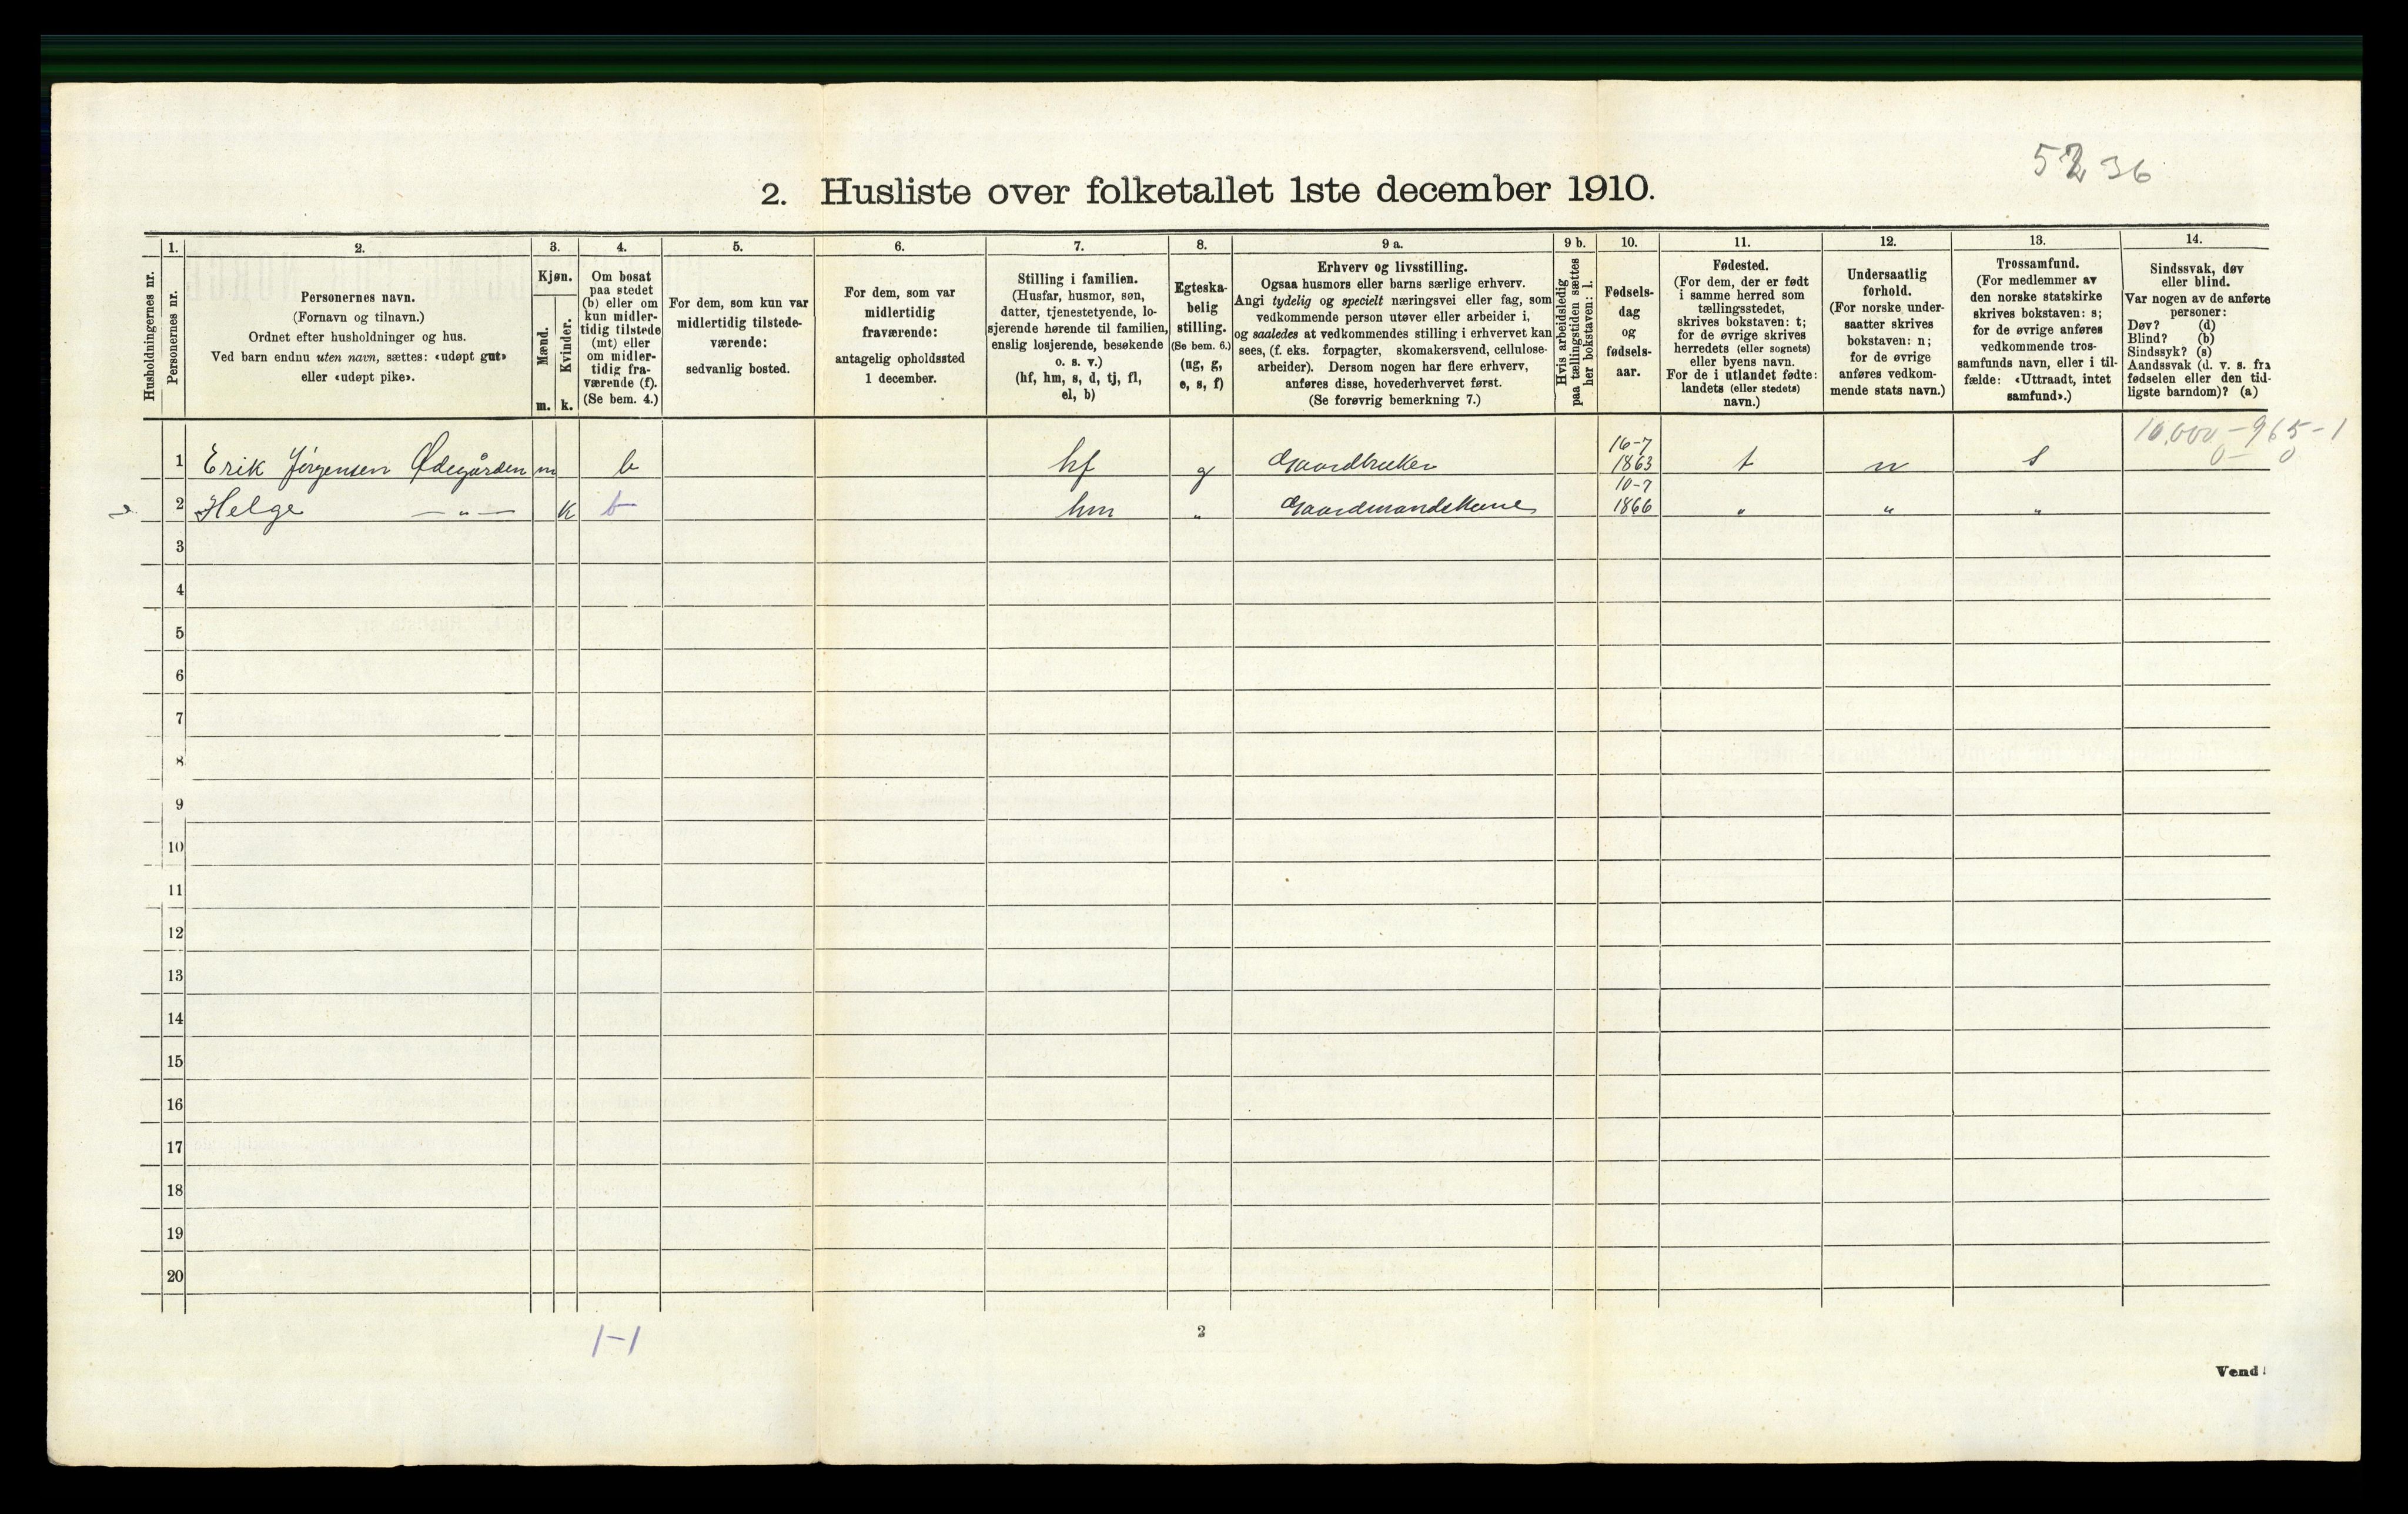 52 36
2. Husliste over folketallet 1ste december 1910.
Husholdningernes nr.
1.
Personernes nr.
2.
Personernes navn.
(Fornavn og tilnavn.)
Ordnet efter husholdninger og hus.
Ved barn endnu uten navn, sættes: «udøpt gut»
eller «udøpt pike».
3.
Kjøn.
Mænd.
Kvinder.
m. k.
4.
Om bosat
paa stedet
(b) eller om
kun midler-
tidig tilstede
(mt) eller
om midler-
tidig fra-
værende (f).
(Se bem. 4.)
5.
For dem, som kun var
midlertidig tilstede-
værende:
sedvanlig bosted.
6.
For dem, som var
midlertidig
fraværende:
antagelig opholdssted
1 december.
7.
Stilling i familien.
(Husfar, husmor, søn,
datter, tjenestetyende, lo-
sjerende hørende til familien,
enslig losjerende, besøkende
o. s. v.)
(hf, hm, s, d, tj, fl,
el, b)
8.
Egteska-
belig
stilling.
(Se bem. 6.)
(ug, g,
e, s, f)
9 a.
Erhverv og livsstilling.
Ogsaa husmors eller barns særlige erhverv.
Angi tydelig og specielt næringsvei eller fag, som
vedkommende person utøver eller arbeider i,
og saaledes at vedkommendes stilling i erhvervet kan
sees, (f. eks. forpagter, skomakersvend, cellulose-
arbeider). Dersom nogen har flere erhverv,
anføres disse, hovederhvervet først.
(Se forøvrig bemerkning 7.)
9 b.
Hvis arbeidsledig
paa tællingstiden sættes
her bokstaven: l.
10.
Fødsels-
dag
og
fødsels-
aar.
11.
Fødested.
(For dem, der er født
i samme herred som
tællingsstedet,
skrives bokstaven: t;
for de øvrige skrives
herredets (eller sognets)
eller byens navn.
For de i utlandet fødte:
landets (eller stedets)
navn.)
12.
Undersaatlig
forhold.
(For norske under-
saatter skrives
bokstaven: n;
for de øvrige
anføres vedkom-
mende stats navn.)
13.
Trossamfund.
(For medlemmer av
den norske statskirke
skrives bokstaven: s;
for de øvrige anføres
vedkommende tros-
samfunds navn, eller i til-
fælde: «Uttraadt, intet
samfund».)
14.
Sindssvak, døv
eller blind.
Var nogen av de anførte
personer:
Døv? (d)
Blind? (b)
Sindssyk? (s)
Aandssvak (d. v. s. fra
fødselen eller den tid-
ligste barndom)? (a)
10,000 - 965 - 1
0 - 0
1 Erik Jørgensen Ødegården m b hf g Gaardbruker 16-7 1863 t n s
2 Helge —„— k b hm „ Gaardmandskone 10-7 1866 „ „ „
3
4
5
6
7
8
9
10
11
12
13
14
15
16
17
18
19
20
1-1
2
Vend!